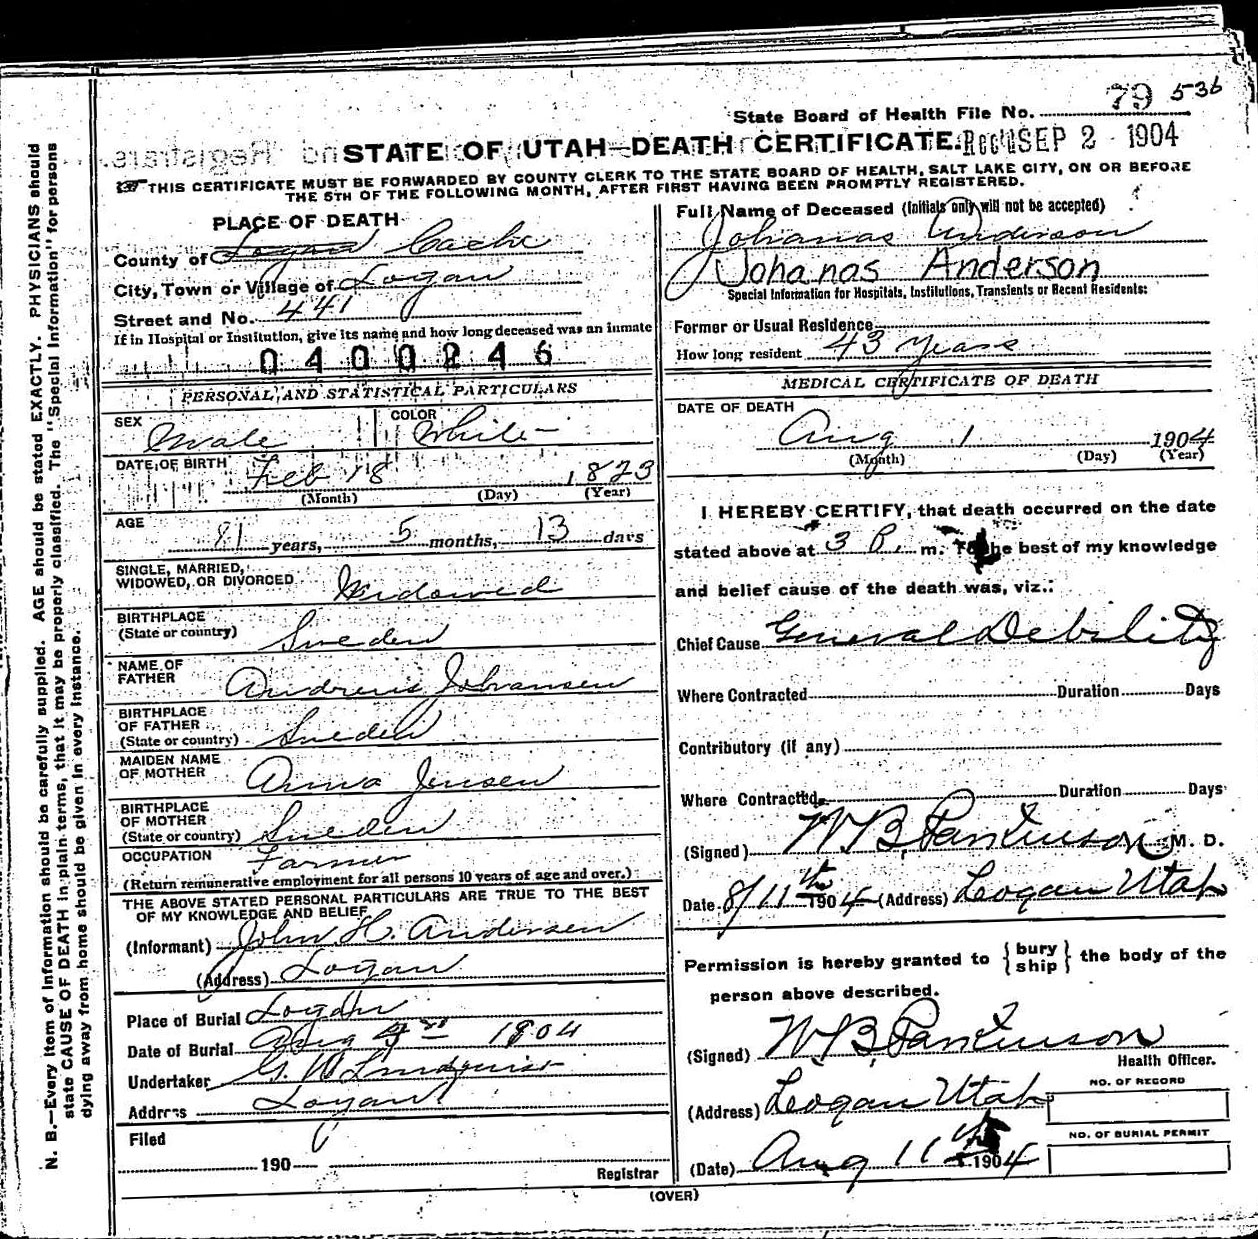 79 536
State Board of Health File No.
STATE OF UTAH—DEATH CERTIFICATE. Rec'd SEP 2 1904
and Registrars.
THIS CERTIFICATE MUST BE FORWARDED BY COUNTY CLERK TO THE STATE BOARD OF HEALTH, SALT LAKE CITY, ON OR BEFORE
THE 5TH OF THE FOLLOWING MONTH, AFTER FIRST HAVING BEEN PROMPTLY REGISTERED.
PLACE OF DEATH
County of Logan Cache
City, Town or Village of Logan
Street and No. 441
If in Hospital or Institution, give its name and how long deceased was an inmate
0400246
PERSONAL AND STATISTICAL PARTICULARS
SEX Male COLOR White
DATE OF BIRTH Feb 18 1823
(Month) (Day) (Year)
AGE 81 years, 5 months, 13 days
SINGLE, MARRIED,
WIDOWED, OR DIVORCED Widowed
BIRTHPLACE
(State or country) Sweden
NAME OF
FATHER Andreas Johansen
BIRTHPLACE
OF FATHER
(State or country) Sweden
MAIDEN NAME
OF MOTHER Anna Jensen
BIRTHPLACE
OF MOTHER
(State or country) Sweden
OCCUPATION Farmer
(Return remunerative employment for all persons 10 years of age and over.)
THE ABOVE STATED PERSONAL PARTICULARS ARE TRUE TO THE BEST
OF MY KNOWLEDGE AND BELIEF
(Informant) John H. Andersen
(Address) Logan
Place of Burial Logan
Date of Burial Aug 1904
Undertaker G. W Lindquist
Address Logan
Filed
190—
Registrar
Full Name of Deceased (Initials only will not be accepted)
Johanas Anderson
Johanas Anderson
Special Information for Hospitals, Institutions, Transients or Recent Residents:
Former or Usual Residence
How long resident 43 years
MEDICAL CERTIFICATE OF DEATH
DATE OF DEATH
Aug 1 1904
(Month) (Day) (Year)
I HEREBY CERTIFY, that death occurred on the date
stated above at 3 P. m. To the best of my knowledge
and belief cause of the death was, viz.:
Chief Cause General Debility
Where Contracted Duration Days
Contributory (if any)
Where Contracted Duration Days
(Signed) W B Parkinson M. D.
Date 8/11th 1904 (Address) Logan Utah
Permission is hereby granted to { bury ship } the body of the
person above described.
(Signed) W B Parkinson
Health Officer.
(Address) Logan Utah
NO. OF RECORD
NO. OF BURIAL PERMIT
(Date) Aug 11th 1904
(OVER)
N. B.—Every item of information should be carefully supplied. AGE should be stated EXACTLY. PHYSICIANS should
state CAUSE OF DEATH in plain terms, that it may be properly classified. The "Special Information" for persons
dying away from home should be given in every instance.